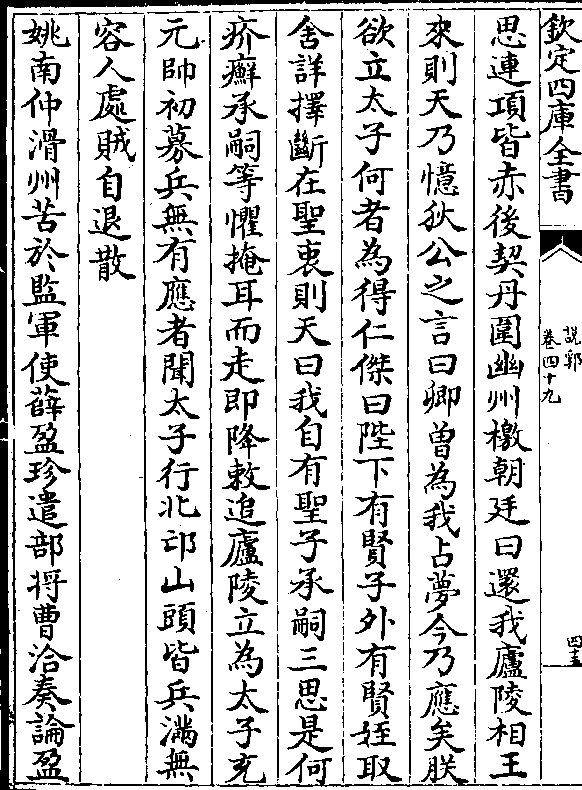 欽定四庫全書
說郛
卷四十九
四五
思連項皆赤後契丹圍幽州檄朝廷曰還我廬陵相王
來則天乃憶狄公之言曰卿曾為我占夢今乃應矣朕
欲立太子何者為得仁傑曰陛下有賢子外有賢姪取
舍詳擇斷在聖衷則天曰我自有聖子承嗣三思是何
疥癬承嗣等懼掩耳而走即降敕追廬陵立為太子充
元帥初募兵無有應者聞太子行北邙山頭皆兵滿無
容人處賊自退散
姚南仲滑州苦於監軍使薛盈珍遣部將曹洽奏論盈